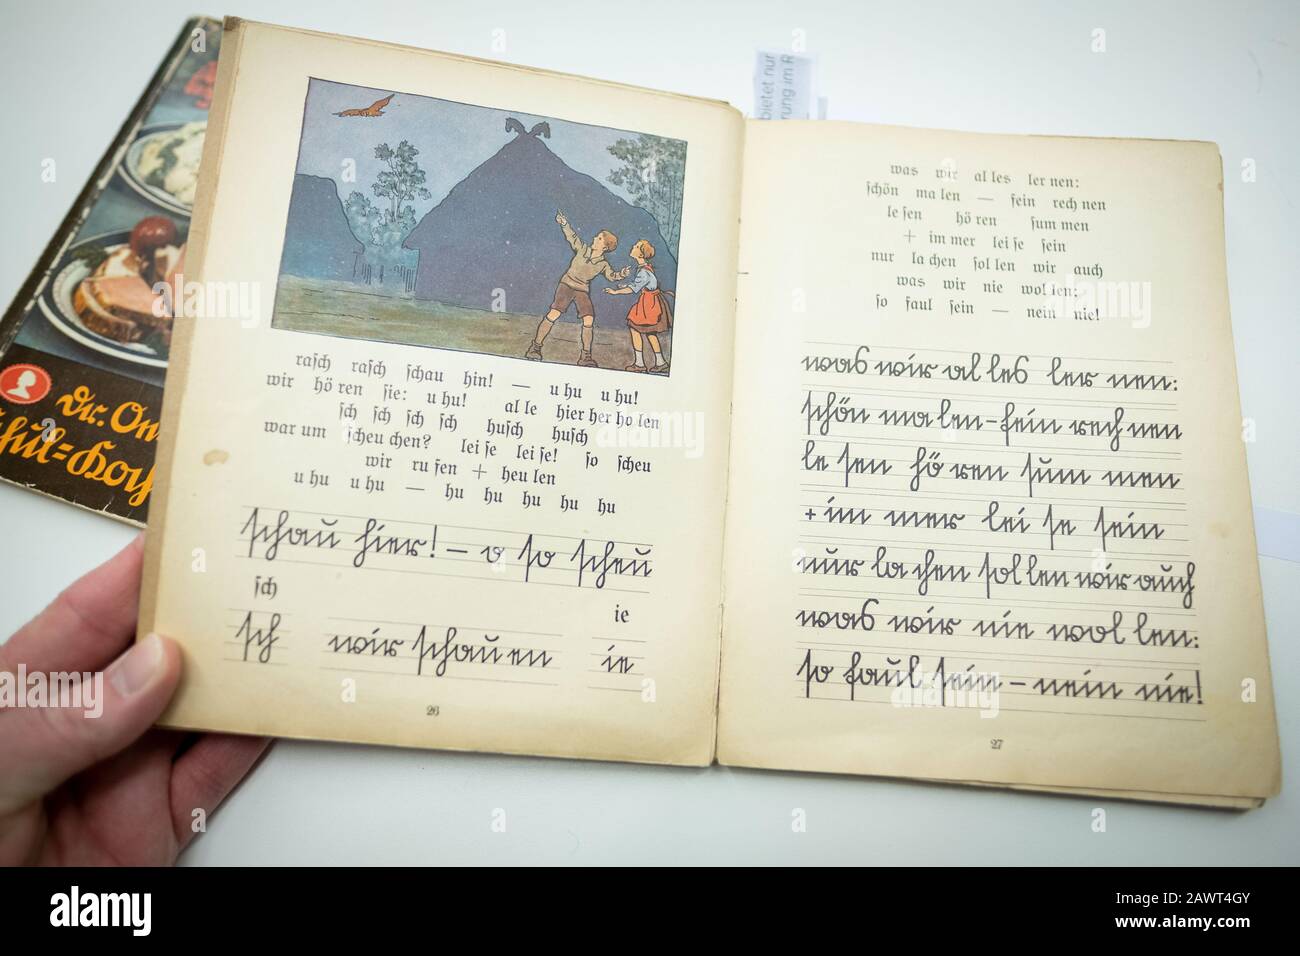 rasch rasch schau hin! — u hu u hu!
wir hö ren sie: u hu! al le hier her ho len
sch sch sch sch husch husch
war um scheu chen? lei se lei se! so scheu
wir ru fen + heu len
u hu u hu — hu hu hu hu hu
schau hier! – o so scheu
sch ie
sch wir schauen ie
26
was wir al les ler nen:
schön ma len — fein rech nen
le sen hö ren sum men
+ im mer lei se sein
nur la chen sol len wir auch
was wir nie wol len:
so faul sein — nein nie!
was wir al les ler nen:
schön ma len – fein rech nen
le sen hö ren sum men
+ im mer lei se sein
nur la chen sol len wir auch
was wir nie wol len:
so faul sein – nein nie!
27
bietet nur
rung im R
Dr. Oe
Schul=Koch
alamy
Image ID: 2AWT4GY
www.alamy.com